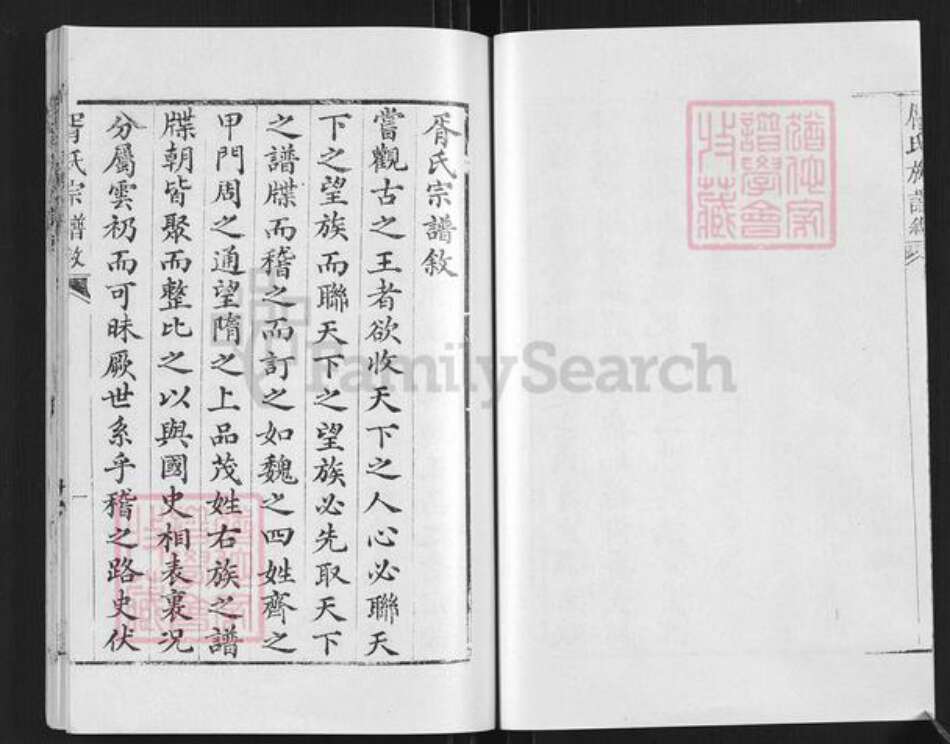 胥氏宗譜敘
嘗觀古之王者欲收天下之人心必聯天
下之望族而聯天下之望族必先取天下
之譜牒而稽之而訂之如魏之四姓齊之
甲門周之通望隋之上品茂姓右族之譜
牒朝皆聚而整比之以與國史相表裏况
分屬雲礽而可昧厥世系乎稽之路史伏
胥氏宗譜敘
一
胥氏族譜敘
猶他家
譜學會
收藏
FamilySearch